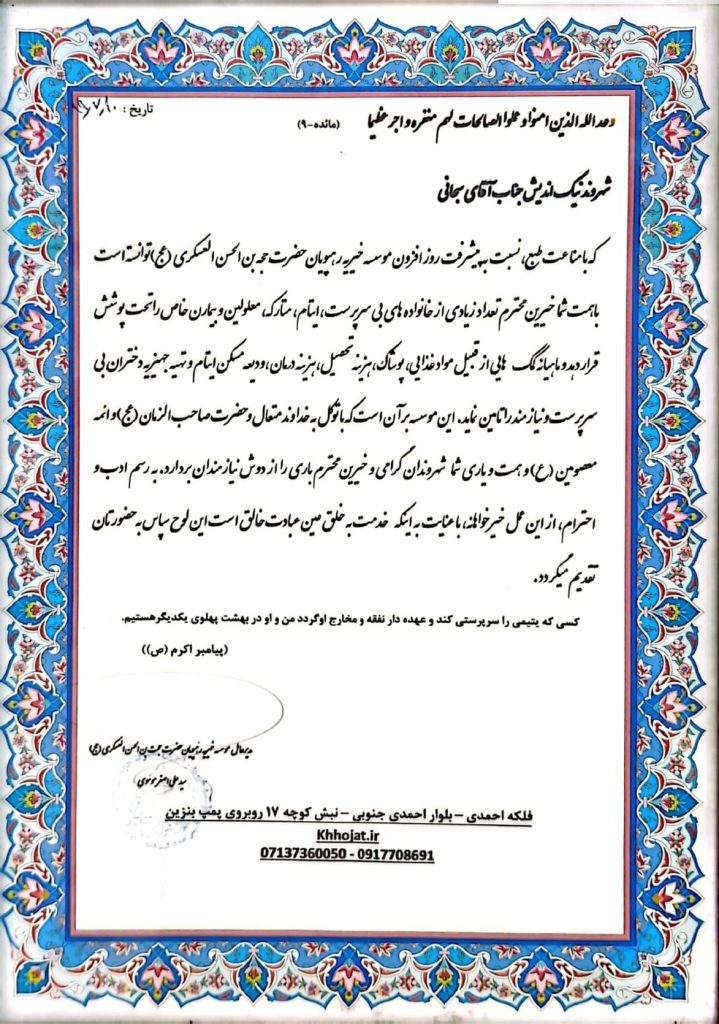 وعد الله الذین امنوا و عملوا الصالحات لهم مغفره و اجر عظیما (مائده-۹)
تاریخ :
شهروند نیک اندیش جناب آقای سبحانی
که با مناعت طبع، نسبت به پیشرفت روز افزون موسسه خیریه رهپویان حضرت حجه بن الحسن العسکری (عج) توانسته است
با همت شما خیرین محترم تعداد زیادی از خانواده های بی سرپرست، ایتام، متارکه، معلولین و بیماران خاص را تحت پوشش
قرار دهد و ماهیانه کمک هایی از قبیل مواد غذایی، پوشاک، هزینه تحصیل، هزینه درمان، ودیعه مسکن ایتام و تهیه جهیزیه دختران بی
سرپرست و نیازمند را تامین نماید. این موسسه بر آن است که با توکل به خداوند متعال و حضرت صاحب الزمان (عج) و ائمه
معصومین (ع) و همت و یاری شما شهروندان گرامی و خیرین محترم باری را از دوش نیازمندان بردارد. به رسم ادب و
احترام، از این عمل خیرخواهانه، با عنایت به اینکه خدمت به خلق عین عبادت خالق است این لوح سپاس به حضورتان
تقدیم میگردد.
کسی که یتیمی را سرپرستی کند و عهده دار نفقه و مخارج اوگردد من و او در بهشت پهلوی یکدیگرهستیم.
(پیامبر اکرم (ص))
مدیرعامل موسسه خیریه رهپویان حضرت حجت بن الحسن العسکری (عج)
سید علی اصغر موسوی
فلکه احمدی – بلوار احمدی جنوبی – نبش کوچه ۱۷ روبروی پمپ بنزین
Khhojat.ir
07137360050 - 0917708691